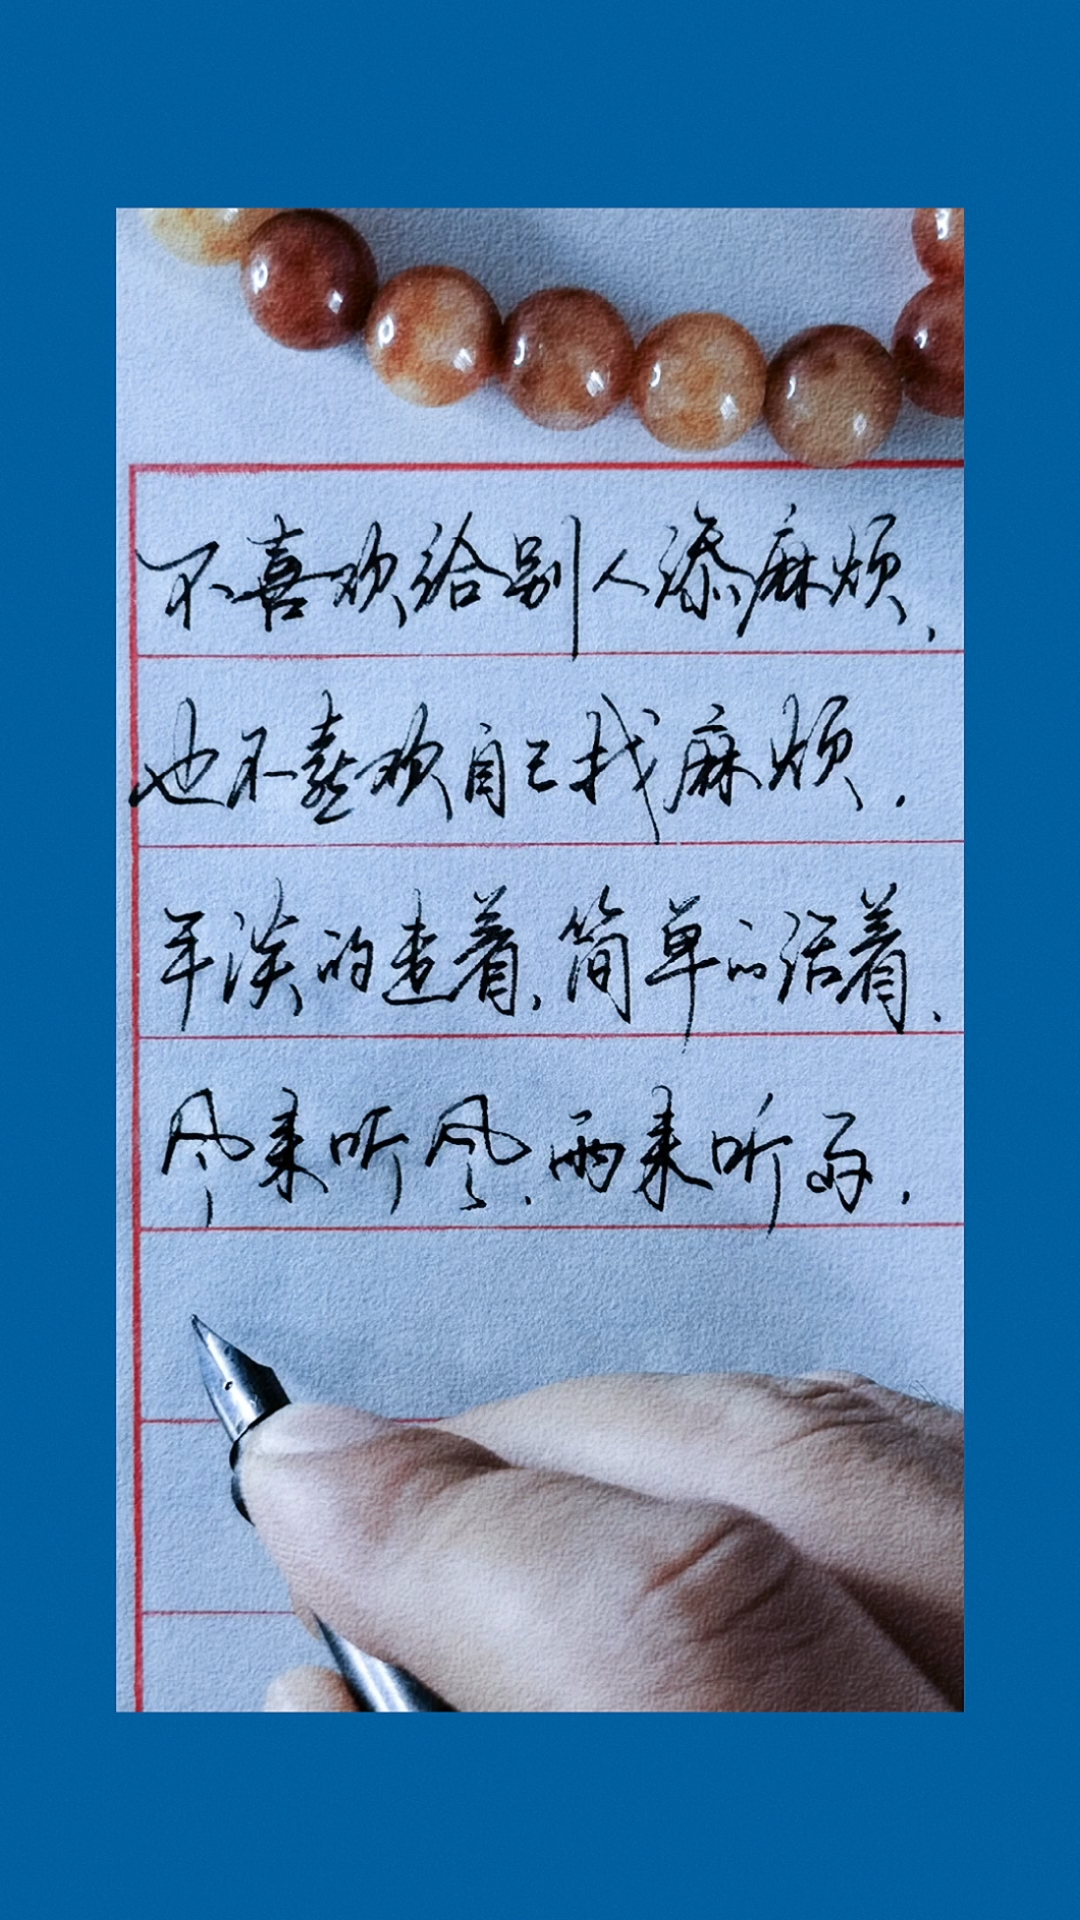 不喜欢给别人添麻烦，
也不喜欢自己找麻烦，
平淡的着，简单的活着，
风来听风，雨来听雨，